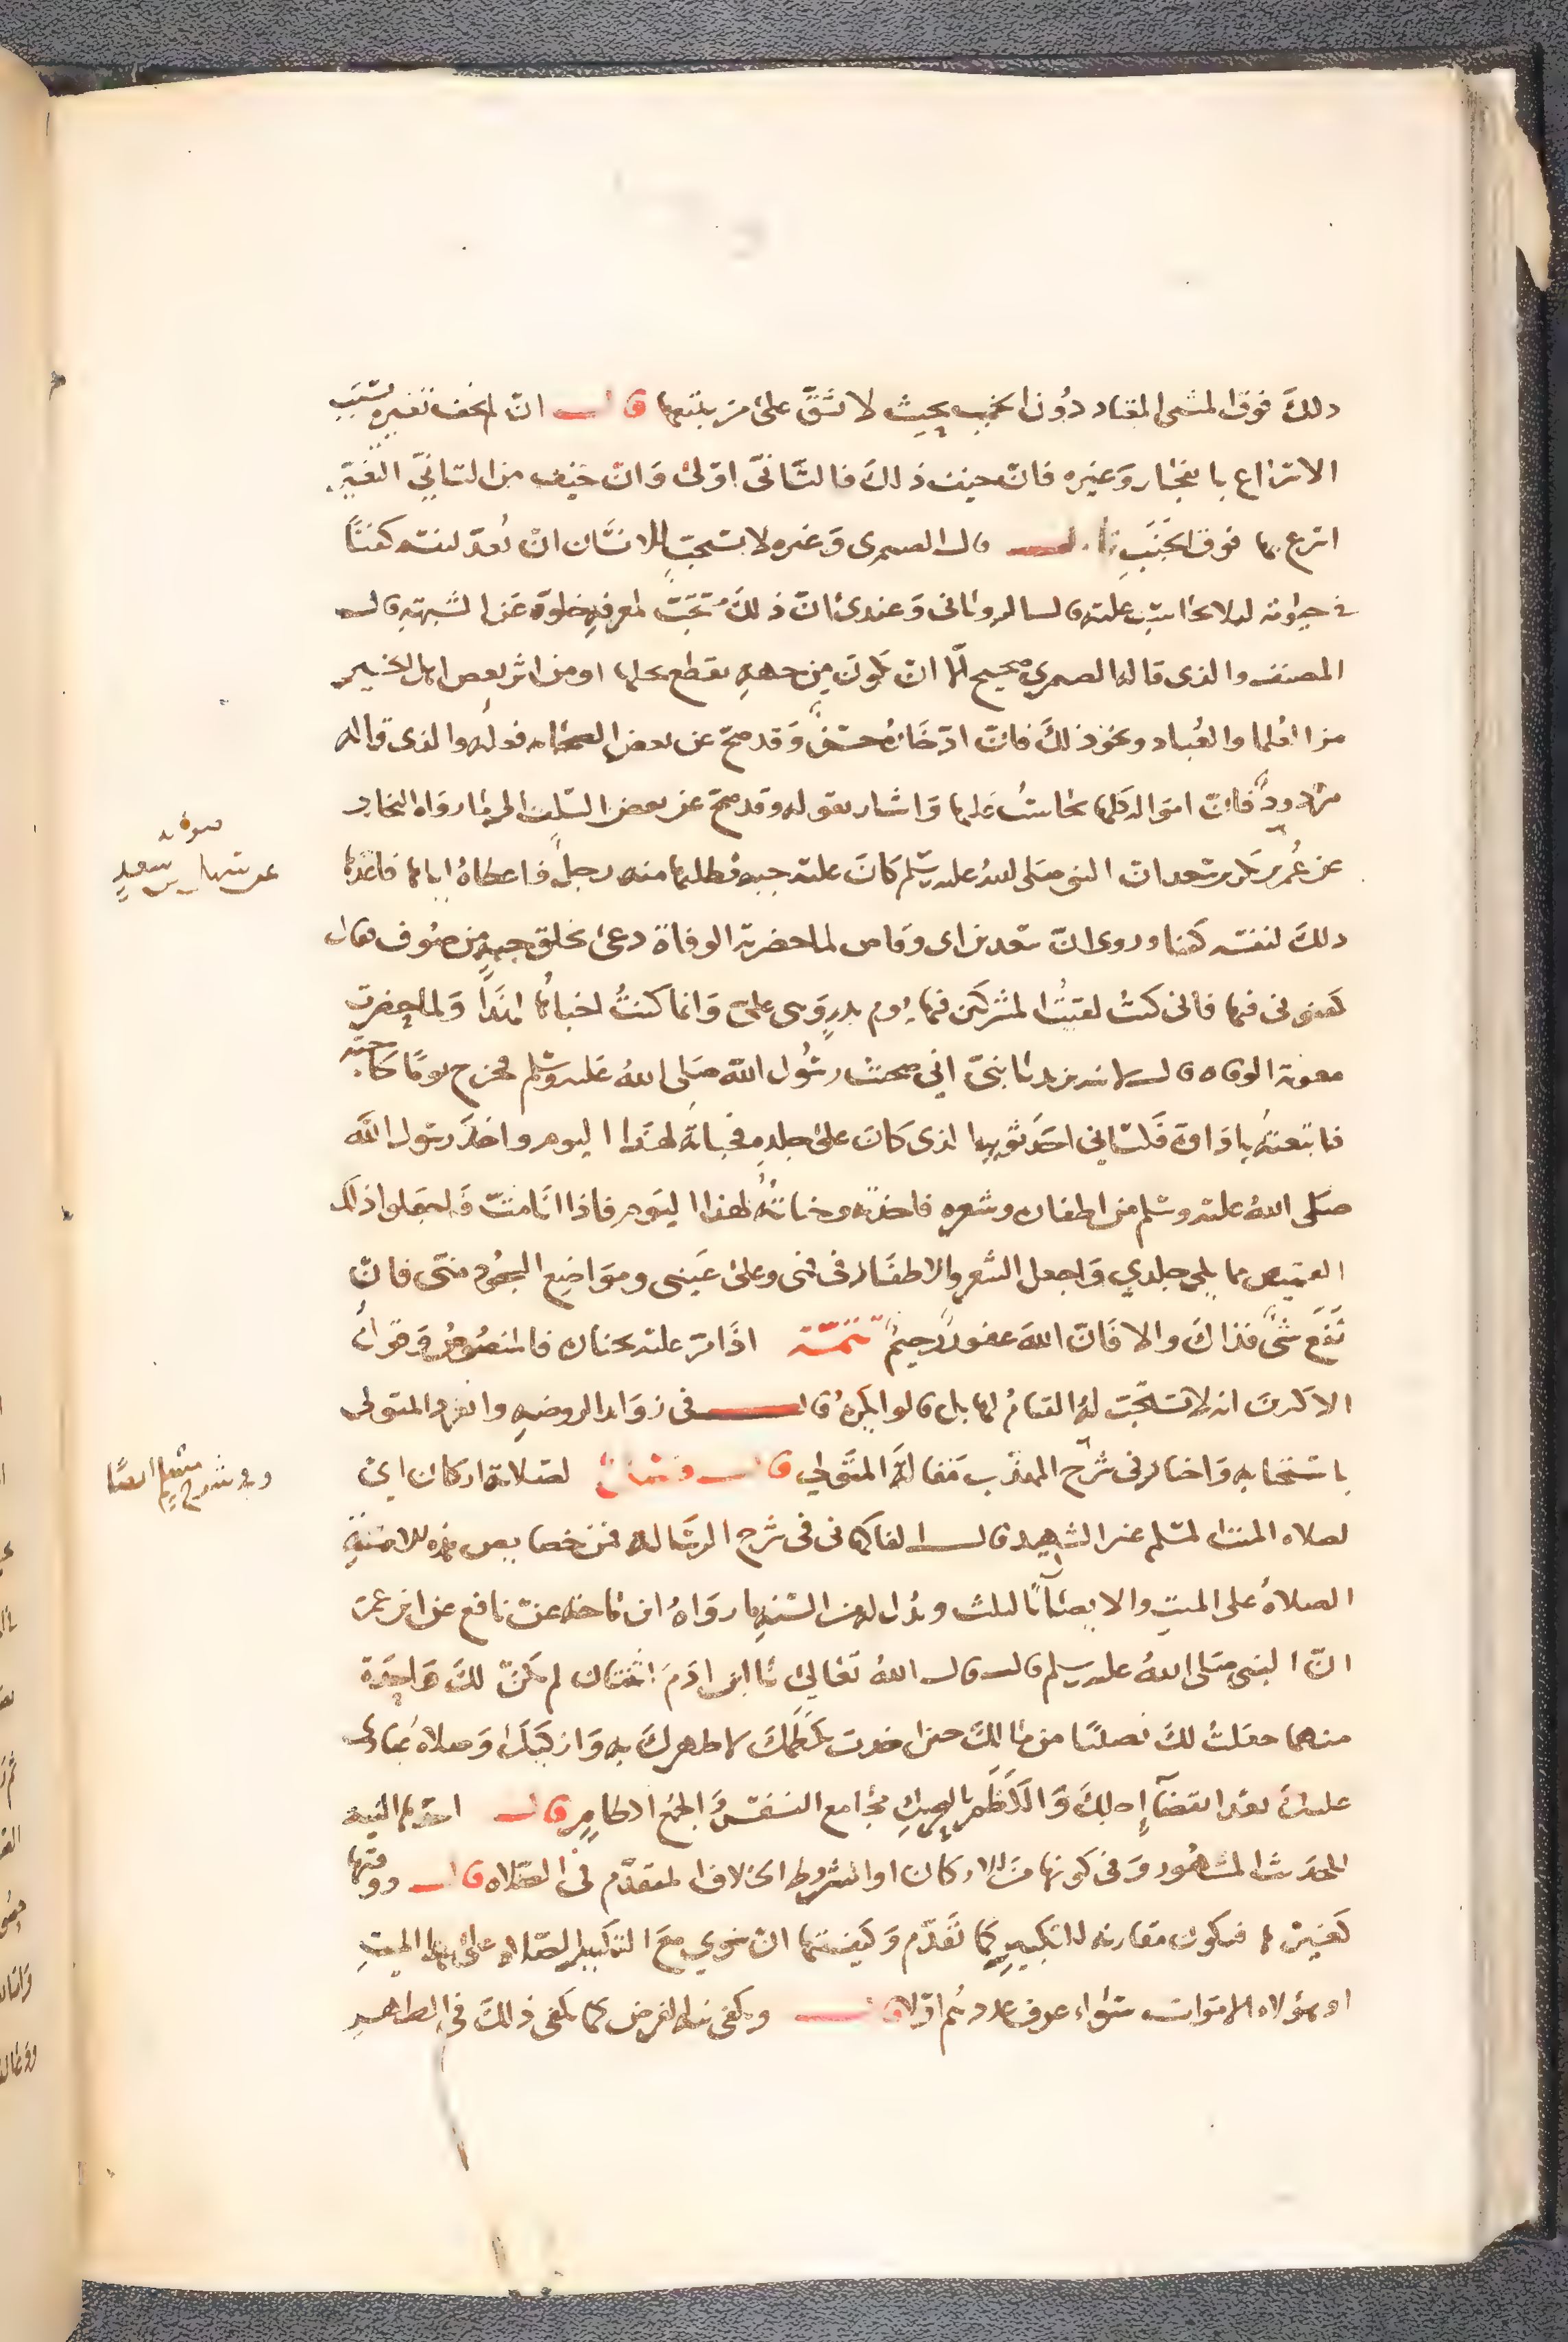 ذلك فوق المشي المعتاد دون الخبب بحيث لا تشق على من يتبعها قال ان لم يخف تغيره بسبب
الاسراع بانفجار وغيره فان خيف ذلك فالتأني اولى وان خيف من التأني التغير
اسرع بها فوق الخبب قال الصيمري وغيره لا يستحب للانسان ان يعد لنفسه كفنا
في حيوته ليلا يحاسب عليه قال الروياني وعندي ان ذلك مستحب لمعرفه خلوه عن الشبهة قال
المصنف والذي قاله الصيمري صحيح الا ان يكون من جهة يقطع بحلها او من اثر بعض اهل الخير
من العلما والعباد ونحو ذلك فان ادخاره حسن وقد صح عن بعض الصحابه فعله والذي قاله
مردود فان امواله كلها يحاسب عليها واشار بقوله وقد صح عن بعض السلف الى ما رواه البخاري
عن سعد ان النبي صلى الله عليه وسلم كان عليه جبه فطلبها منه رجل فاعطاه اياها فاعدها
ذلك لنفسه كفنا وروى ان سعد بن ابي وقاص لما حضرته الوفاة دعى بخلق جبه من صوف فقال
كفنوني فيها فاني كنت لقيت المشركين فيها يوم بدر وهي علي وانما كنت اخباها لهذا ولما حضرت
معوية الوفاة قال لابنه يزيد يا بني اني صحبت رسول الله صلى الله عليه وسلم فخرج يوما لحاجته
فاتبعته باداوة فكساني احد ثوبيه الذي كان على جلده فخباته لهذا اليوم واخذ رسول الله
صلى الله عليه وسلم من اظفاره وشعره فاخذته وخباته لهذا اليوم فاذا انا مت فاجعلوا ذلك
القميص مما يلي جلدي واجعل الشعر والاظفار في فمي وعلى عيني ومواضع السجود مني فان
نفع شي فذاك والا فان الله غفور رحيم تتمة اذا مر عليه بجنازه فالمنصوص وقول
الاكثرين انه لا يستحب له القيام لها بل قالوا يكره قال في زوايد الروضه وانفرد المتولي
باستحبابه واختار في شرح المهذب مقالة المتولي قال فصل لصلاته اركان اي
لصلاه الميت المسلم غير الشهيد قال الفاكهاني في شرح الرسالة من خصايص هذه الامة
الصلاة على الميت والايصا بالثلث ويدل له من السنه ما رواه ابن ماجه عن نافع عن ابن عمر
ان النبي صلى الله عليه وسلم قال قال الله تعالى يا ابن ادم اثنتان لم تكن لك واحدة
منهما جعلت لك نصيبا من مالك حين اخذت بكظمك لاطهرك به وازكيك وصلاة عبادي
عليك بعد انقضاء اجلك والكظم بالتحريك مجامع النفس والجمع اكظام قال احدها النيه
للحديث المشهور وفي كونها من الاركان او الشروط الخلاف المتقدم في الصلاه قال ووقتها
كغيرها فيكون مقارنه للتكبير كما تقدم وكيفيتها ان ينوي مع التكبير الصلاه على هذا الميت
او هؤلاء الاموات سواء عرف عددهم اولا قال ويكفي نية الفرض كما يكفي ذلك في الظهر
صوابه
عن سهل بن سعد
وفي شرح مسلم ايضا